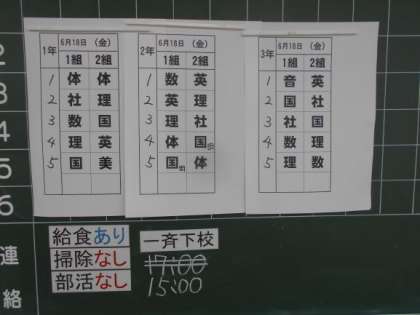 2
3
4
5
6
連
絡
1年 6月18日 (金)
1組 2組
1 体 体
2 社 理
3 数 国
4 理 英
5 国 美
2年 6月18日 (金)
1組 2組
1 数 英
2 英 理
3 理 社
4 体 国
5 国 体
3年 6月18日 (金)
1組 2組
1 音 英
2 国 社
3 社 国
4 英 音
5 理 数
給食あり
掃除なし
部活なし
一斉下校
17:00
15:00